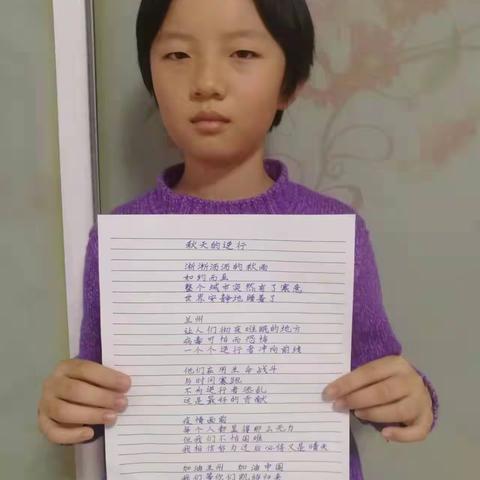 秋天的逆行
淅淅洒洒的秋雨
如约而至
整个城市突然有了寒意
世界安静地睡着了
兰州
让人们彻夜难眠的地方
病毒可怕而恐怖
一个个逆行者冲向前线
他们在用生命战斗
与时间赛跑
不向逆行者添乱
这是最好的贡献
疫情面前
每个人都显得那么无力
但我们不怕困难
我相信努力过后必将又是晴天
加油兰州 加油中国
我们等你们凯旋归来